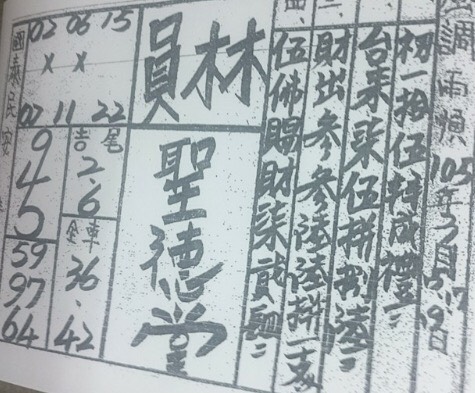 調雨順 105年5月5.7.9日
初一拾伍特成禮
台來柒伍拼捌陸
財出參參陸陸拼一支
伍佛賜財柒貳
林員
聖德堂
15 06 02
x x
22 11 07
尾吉
2.6
全車
36、42
國義民安
9
4
5
59
97
64